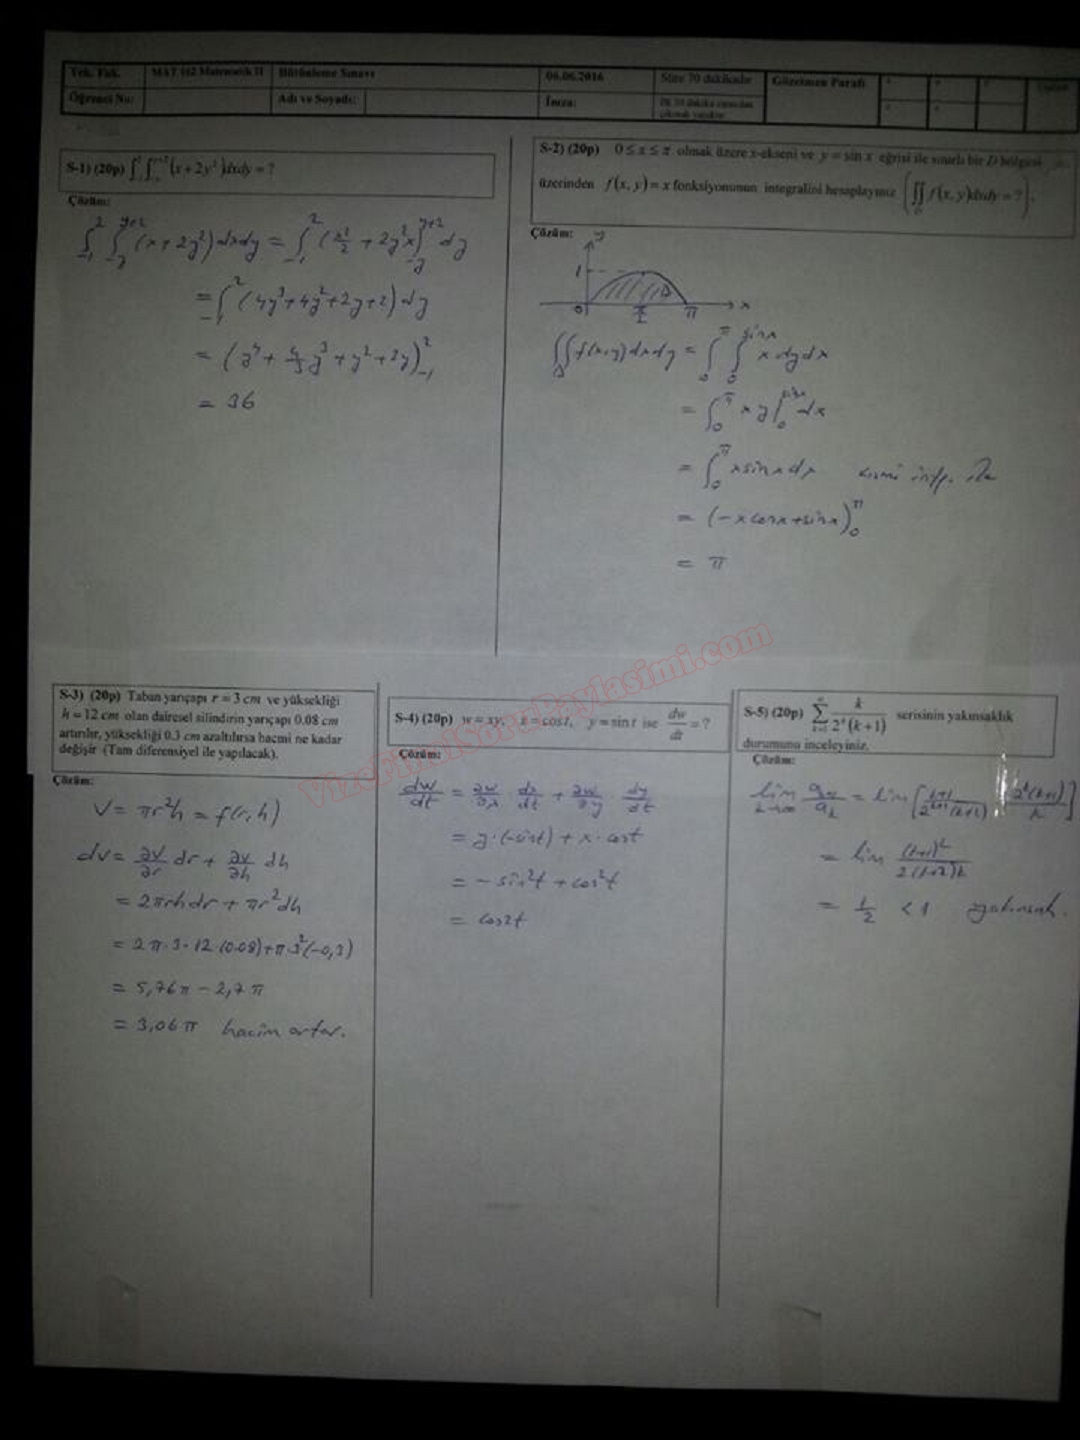 Tek. Fak. MAT 112 Matematik II Bütünleme Sınavı 06.06.2016 Süre 70 dakikadır Gözetmen Parafı
Öğrenci No: Adı ve Soyadı: İmza:
S-1) (20p) ∫₋₁² ∫₋ᵧ^(y+2) (x+2y²)dxdy = ?
Çözüm:
∫₋₁² ∫₋ᵧ^(y+2) (x+2y²)dxdy = ∫₋₁² (x²/2 + 2y²x)₋ᵧ^(y+2) dy
= ∫₋₁² (4y³+4y²+2y+2)dy
= (y⁴ + 4/3 y³ + y² + 2y)₋₁²
= 36
S-2) (20p) 0 ≤ x ≤ π olmak üzere x-ekseni ve y = sin x eğrisi ile sınırlı bir D bölgesi
üzerinden f(x, y) = x fonksiyonunun integralini hesaplayınız (∬_D f(x, y)dxdy = ?).
Çözüm:
y
1
D
0 π/2 π x
∬_D f(x,y)dxdy = ∫₀^π ∫₀^sinx x dydx
= ∫₀^π xy|₀^sinx dx
= ∫₀^π xsinxdx kısmi intg. ile
= (-xcosx+sinx)₀^π
= π
S-3) (20p) Taban yarıçapı r = 3 cm ve yüksekliği
h = 12 cm olan dairesel silindirin yarıçapı 0.08 cm
artırılır, yüksekliği 0.3 cm azaltılırsa hacmi ne kadar
değişir (Tam diferensiyel ile yapılacak).
Çözüm:
V = πr²h = f(r,h)
dV = ∂V/∂r dr + ∂V/∂h dh
= 2πrhdr + πr²dh
= 2π·3·12·(0.08)+π·3²(-0,3)
= 5,76π - 2,7π
= 3,06π hacim artar.
S-4) (20p) w = xy, x = cos t, y = sin t ise dw/dt = ?
Çözüm:
dw/dt = ∂w/∂x · dx/dt + ∂w/∂y · dy/dt
= y·(-sint) + x·cost
= -sin²t + cos²t
= cos2t
S-5) (20p) Σ k/(2ᵏ(k+1)) serisinin yakınsaklık
durumunu inceleyiniz.
Çözüm:
lim k→∞ aₖ₊₁/aₖ = lim [(k+1)/(2ᵏ⁺¹(k+2)) · 2ᵏ(k+1)/k]
= lim (k+1)²/(2(k+2)k)
= 1/2 < 1 yakınsak.
VizeFinalSoruPaylasimi.com